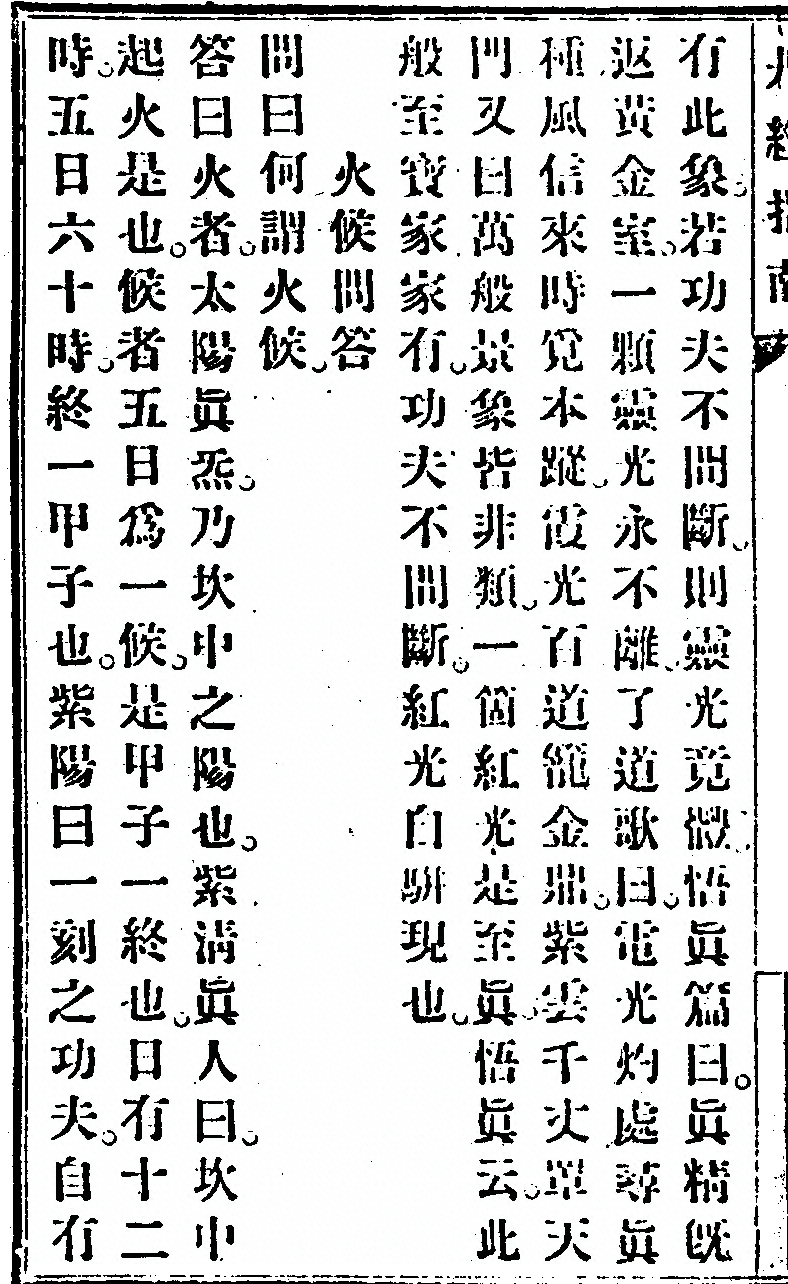 丹經指南
有此象。若功夫不間斷。則靈光竟。悟眞篇曰。眞精旣
返黃金室。一顆靈光永不離。了道歌曰。電光灼處尋眞
種風信來時覓本蹤。霞光百道籠金鼎。紫雲千丈罩天
門又曰萬般景象皆非類。一箇紅光是至眞。悟眞云。此
般至寶家家有。功夫不間斷。紅光自騈現也。
火候問答
問曰何謂火候。
答曰火者。太陽眞炁。乃坎中之陽也。紫淸眞人曰。坎中
起火是也。候者五日爲一候。是甲子一終也。日有十二
時。五日六十時。終一甲子也。紫陽曰一刻之功夫。自有